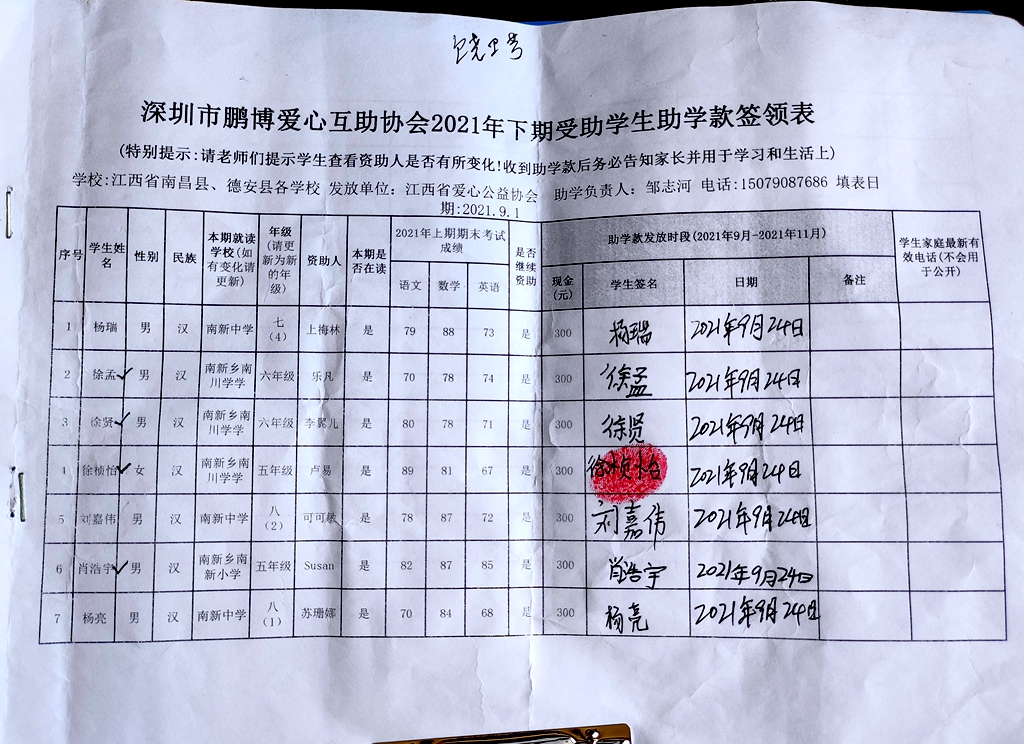 深圳市鹏博爱心互助协会2021年下期受助学生助学款签领表
(特别提示:请老师们提示学生查看资助人是否有所变化!收到助学款后务必告知家长并用于学习和生活上)
学校:江西省南昌县、德安县各学校 发放单位：江西省爱心公益协会 助学负责人：邹志河 电话:15079087686 填表日
期:2021.9.1
序号 学生姓名 性别 民族 本期就读学校(如有变化请更新) 年级(请更新为新的年级) 资助人 本期是否在读 2021年上期期末考试成绩 是否继续资助 助学款发放时段(2021年9月-2021年11月) 学生家庭最新有效电话(不会用于公开)
语文 数学 英语 现金(元) 学生签名 日期 备注
1 杨瑞 男 汉 南新中学 七(4) 上梅林 是 79 88 73 是 300 杨瑞 2021年9月24日
2 徐孟✓ 男 汉 南新乡南川学学 六年级 乐凡 是 70 78 74 是 300 徐孟 2021年9月24日
3 徐贤✓ 男 汉 南新乡南川学学 六年级 李翼儿 是 80 78 71 是 300 徐贤 2021年9月24日
4 徐桢怡✓ 女 汉 南新乡南川学学 五年级 卢易 是 89 81 67 是 300 徐桢怡 2021年9月24日
5 刘嘉伟 男 汉 南新中学 八(2) 可可敏 是 78 87 72 是 300 刘嘉伟 2021年9月24日
6 肖浩宇✓ 男 汉 南新乡南新小学 五年级 Susan 是 82 87 85 是 300 肖浩宇 2021年9月24日
7 杨亮 男 汉 南新中学 八(1) 苏珊娜 是 70 84 68 是 300 杨亮 2021年9月24日